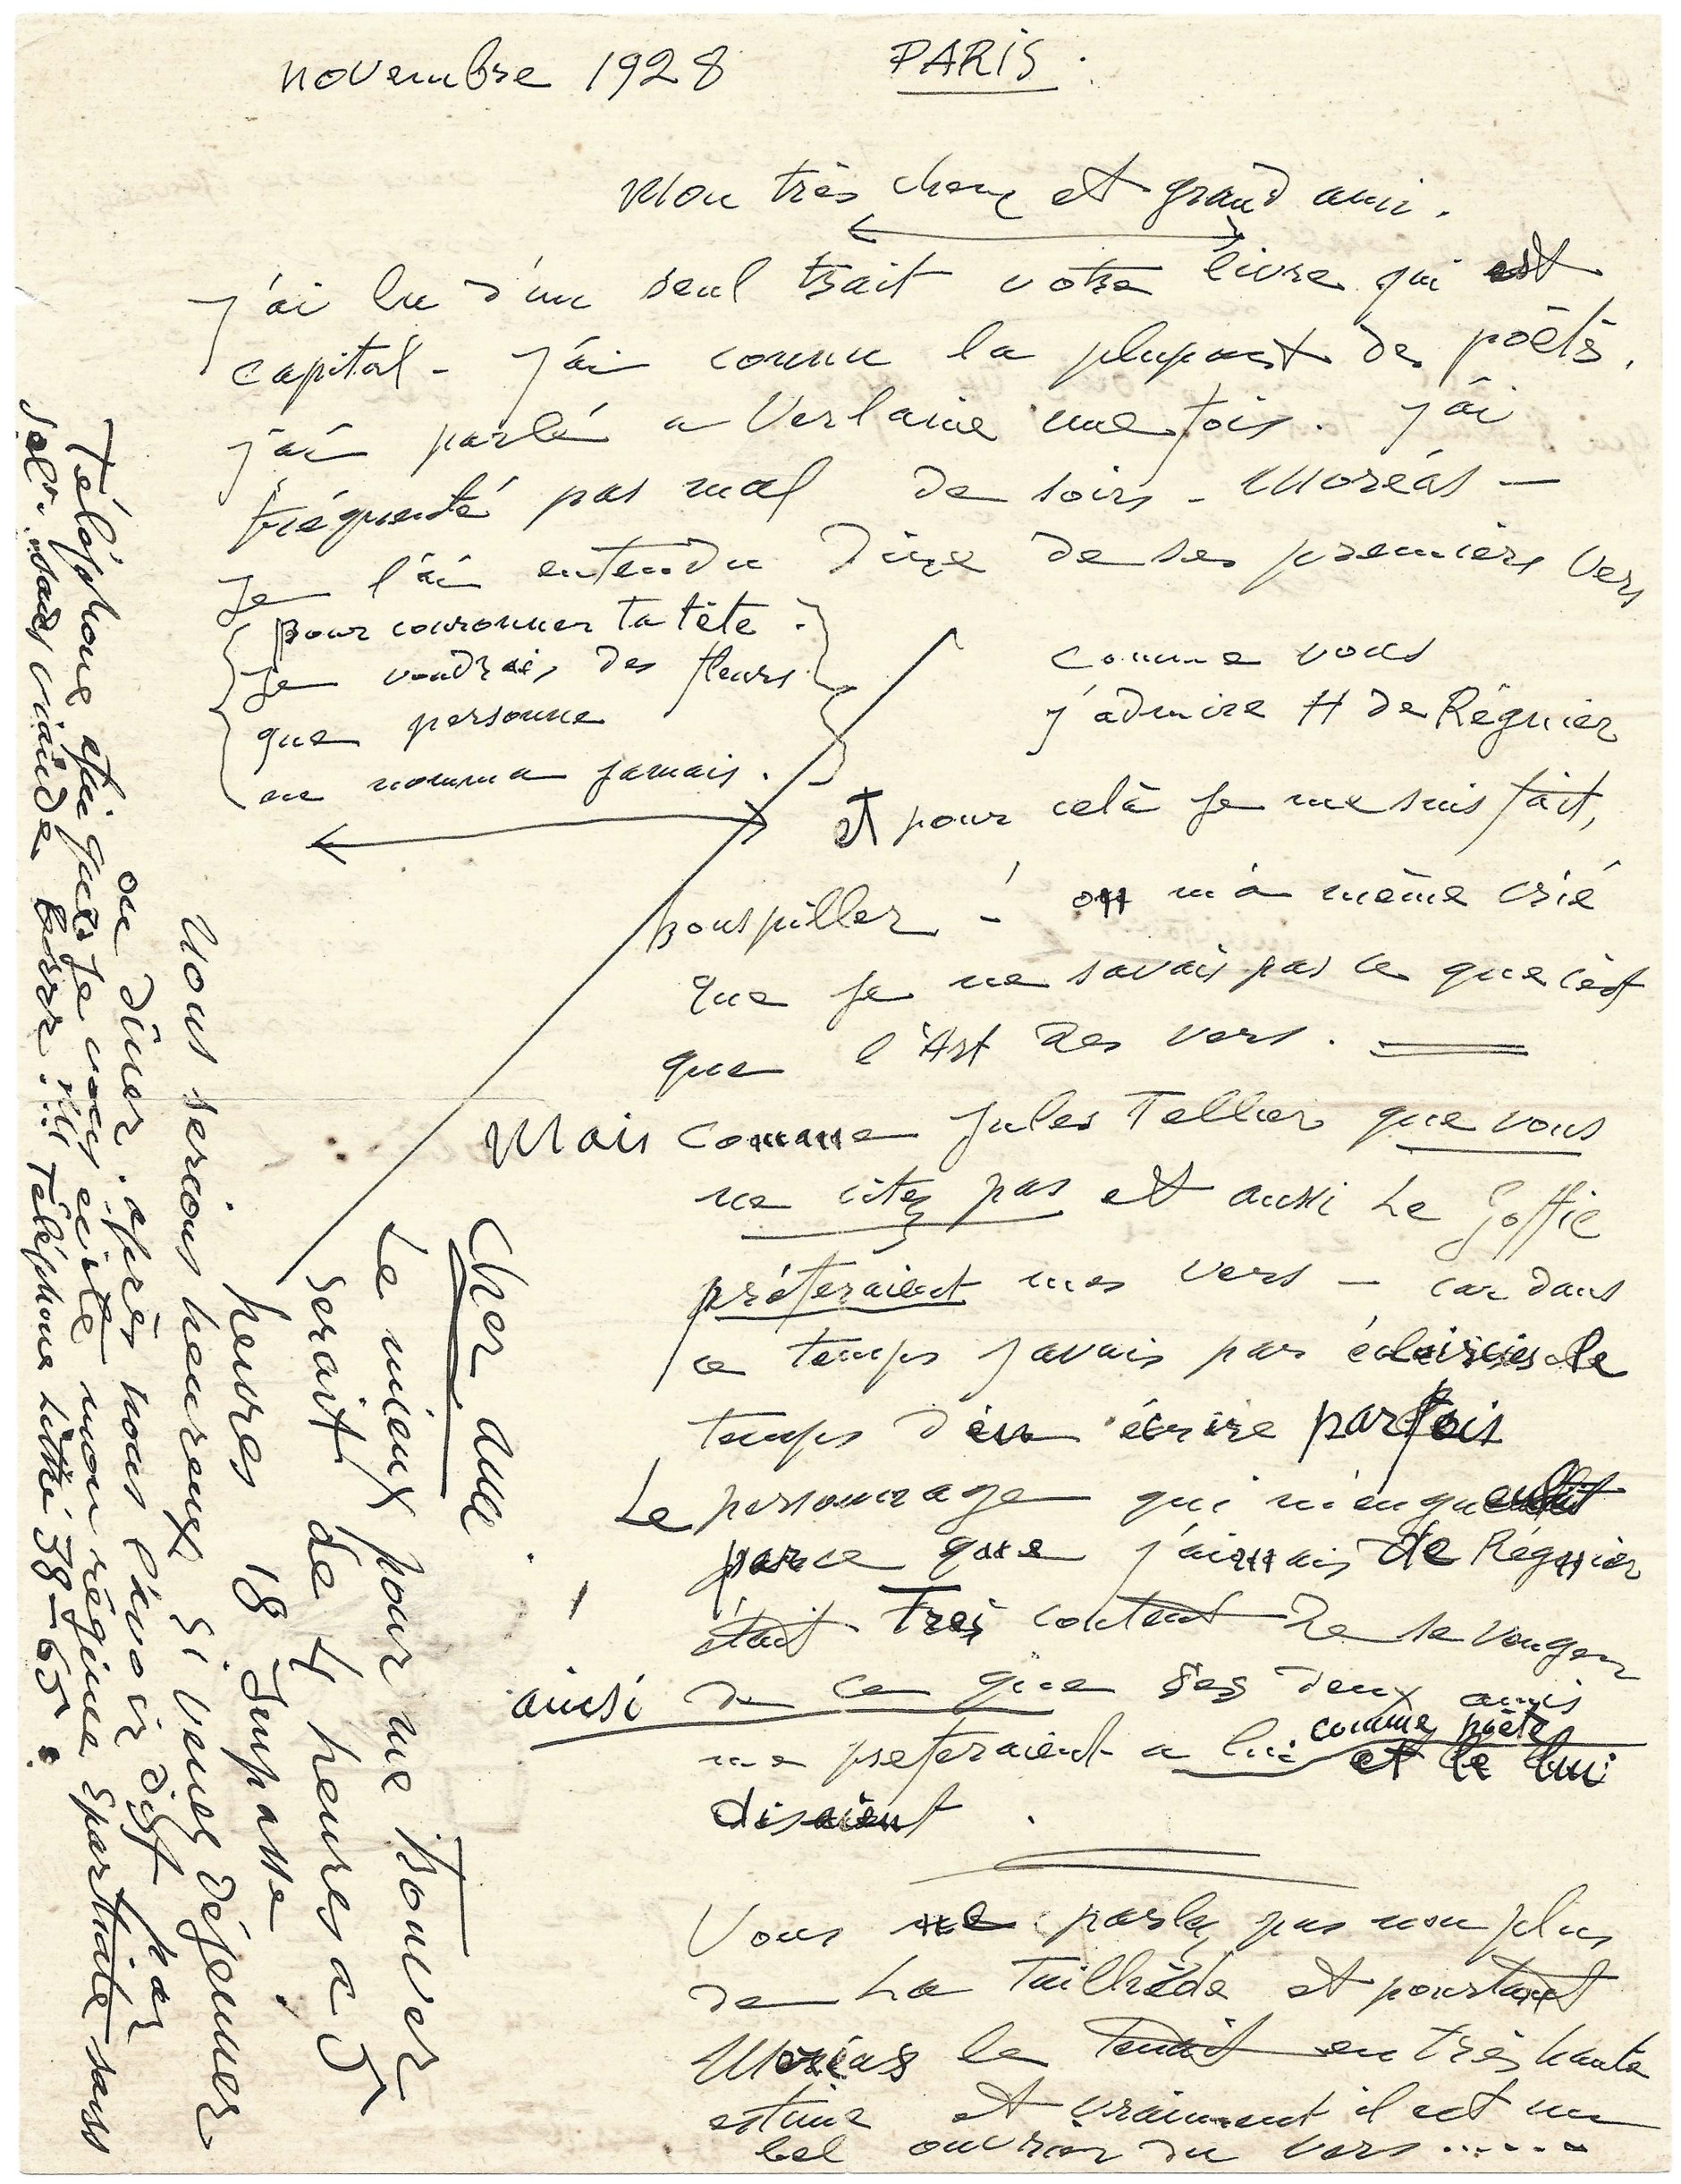 novembre 1928 PARIS.
Mon très cher et grand ami.
j'ai lu d'un seul trait votre livre qui est
capital - j'ai connu la plupart des poëtes.
j'ai parlé a Verlaine une fois. j'ai
fréquenté pas mal de soirs - Moréas -
je l'ai entendu dire de ses premiers vers
pour couronner ta tête.
je voudrais des fleurs
que personne
ne nomma jamais.
comme vous
j'admire H de Régnier
et pour celà je me suis fait,
houspiller ! on m'a même crié
que je ne savais pas ce que c'est
que l'Art des vers.
Mais comme Jules Tellier que vous
ne citez pas et aussi Le Goffic
préferaient mes vers - car dans
ce temps j'avais par éclaircies le
temps d'en écrire parfois
Le personnage qui m'engueulait
parce que j'aimais de Régnier
était Tres content de se venger
ainsi de ce que ses deux amis
me preferaient a lui comme poète et le lui
disaient.
Vous ne parlez pas non plus
de La Tailhède et pourtant
Moréas le tenait en très haute
estime et vraiment il est un
bel ouvrier du vers......
Cher ami.
Le mieux pour me trouver
serait de 4 heures a 5
heures 18 Impasse
Nous serions heureux si veniez déjeuner
ou dîner. après nous l'avoir dit par
Téléphone afin que je vous évite mon régime spartiate sans
sel. sans viande boire.. Téléphone Littré 38-65.